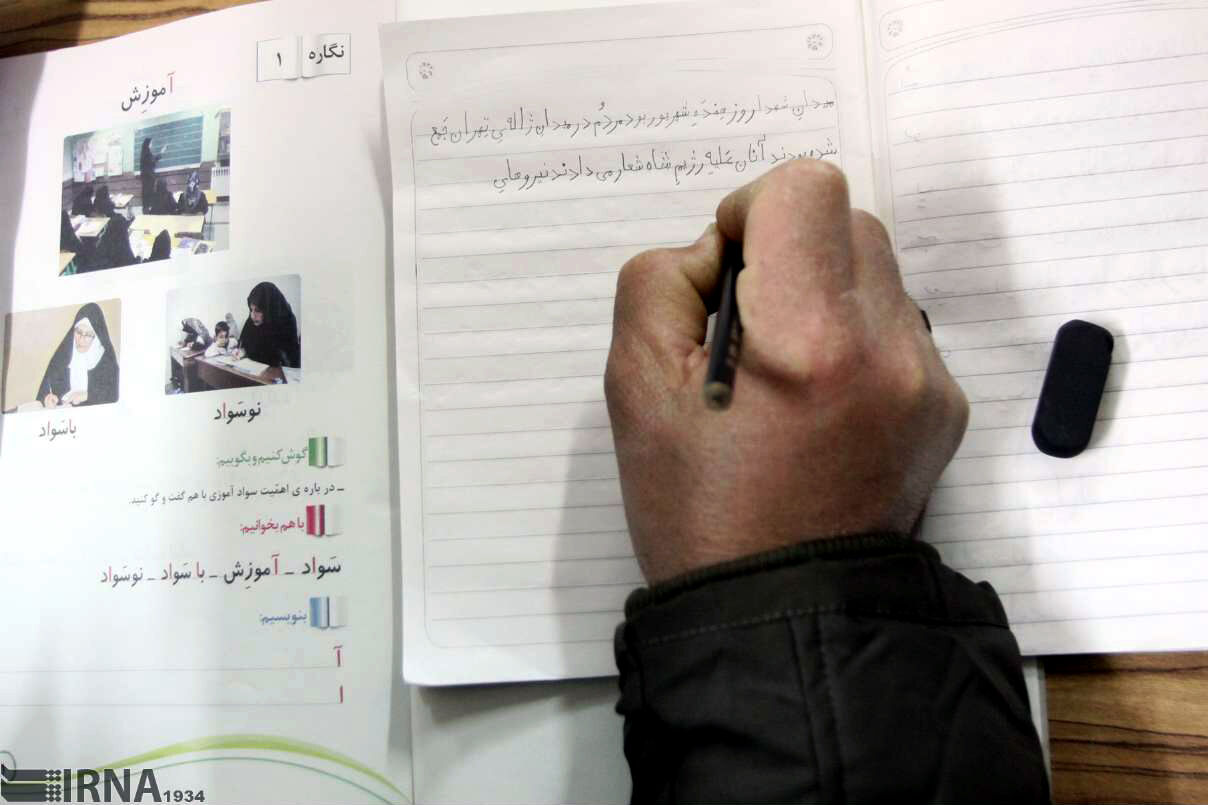 نگاره ۱
آموزِش
باسَواد
نوسَواد
گوش کنیم و بگوییم:
ـ در باره ی اهمّیت سواد آموزی با هم گفت و گو کنید.
با هم بخوانیم:
سَواد ـ آموزِش ـ با سَواد ـ نوسَواد
بنویسیم:
آ
ا
میدانِ شهدا روز هفدَهِ شهریور بود مردُم در میدان ژاله‌یِ تِهران جَمع
شده بودند آنان عَلیهِ رژیمِ شاه شعار می دادند نیروهایِ
IRNA 1934